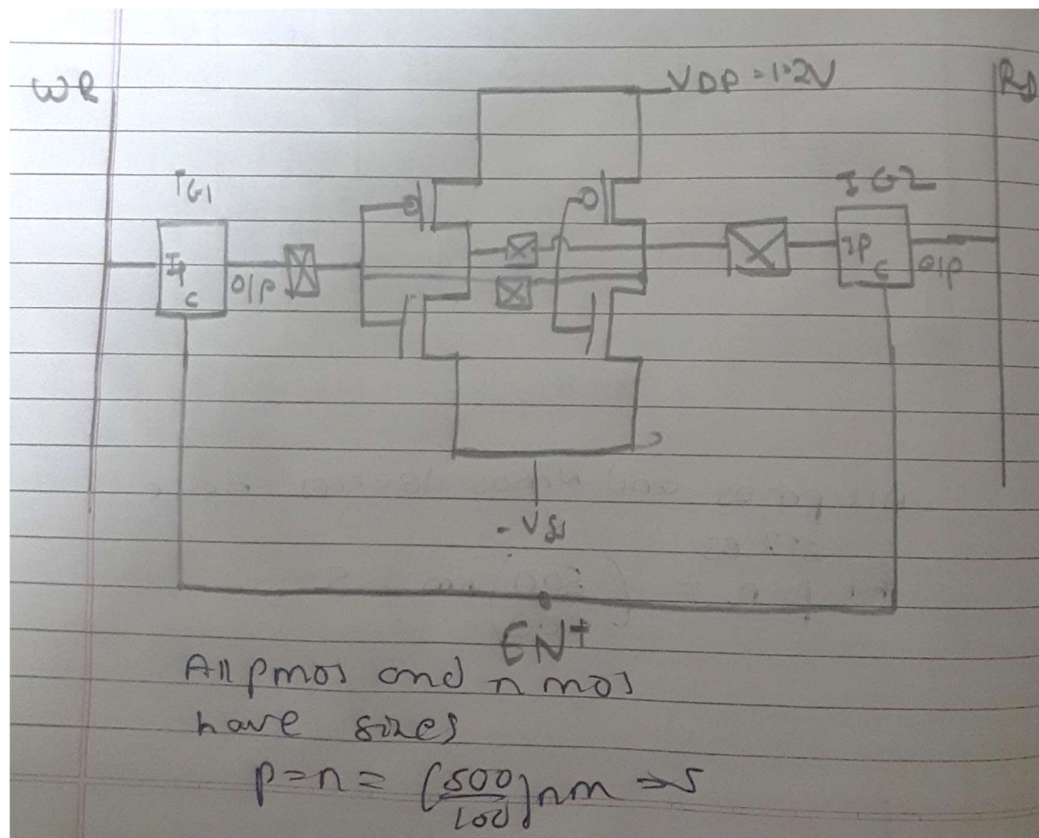 WR
VDD = 1.2V
RD
TG1
TG2
IP
C
O/P
IP
C
O/P
- VSS
EN+
All pmos and n mos
have sizes
p=n= (500/100)nm ⇒5